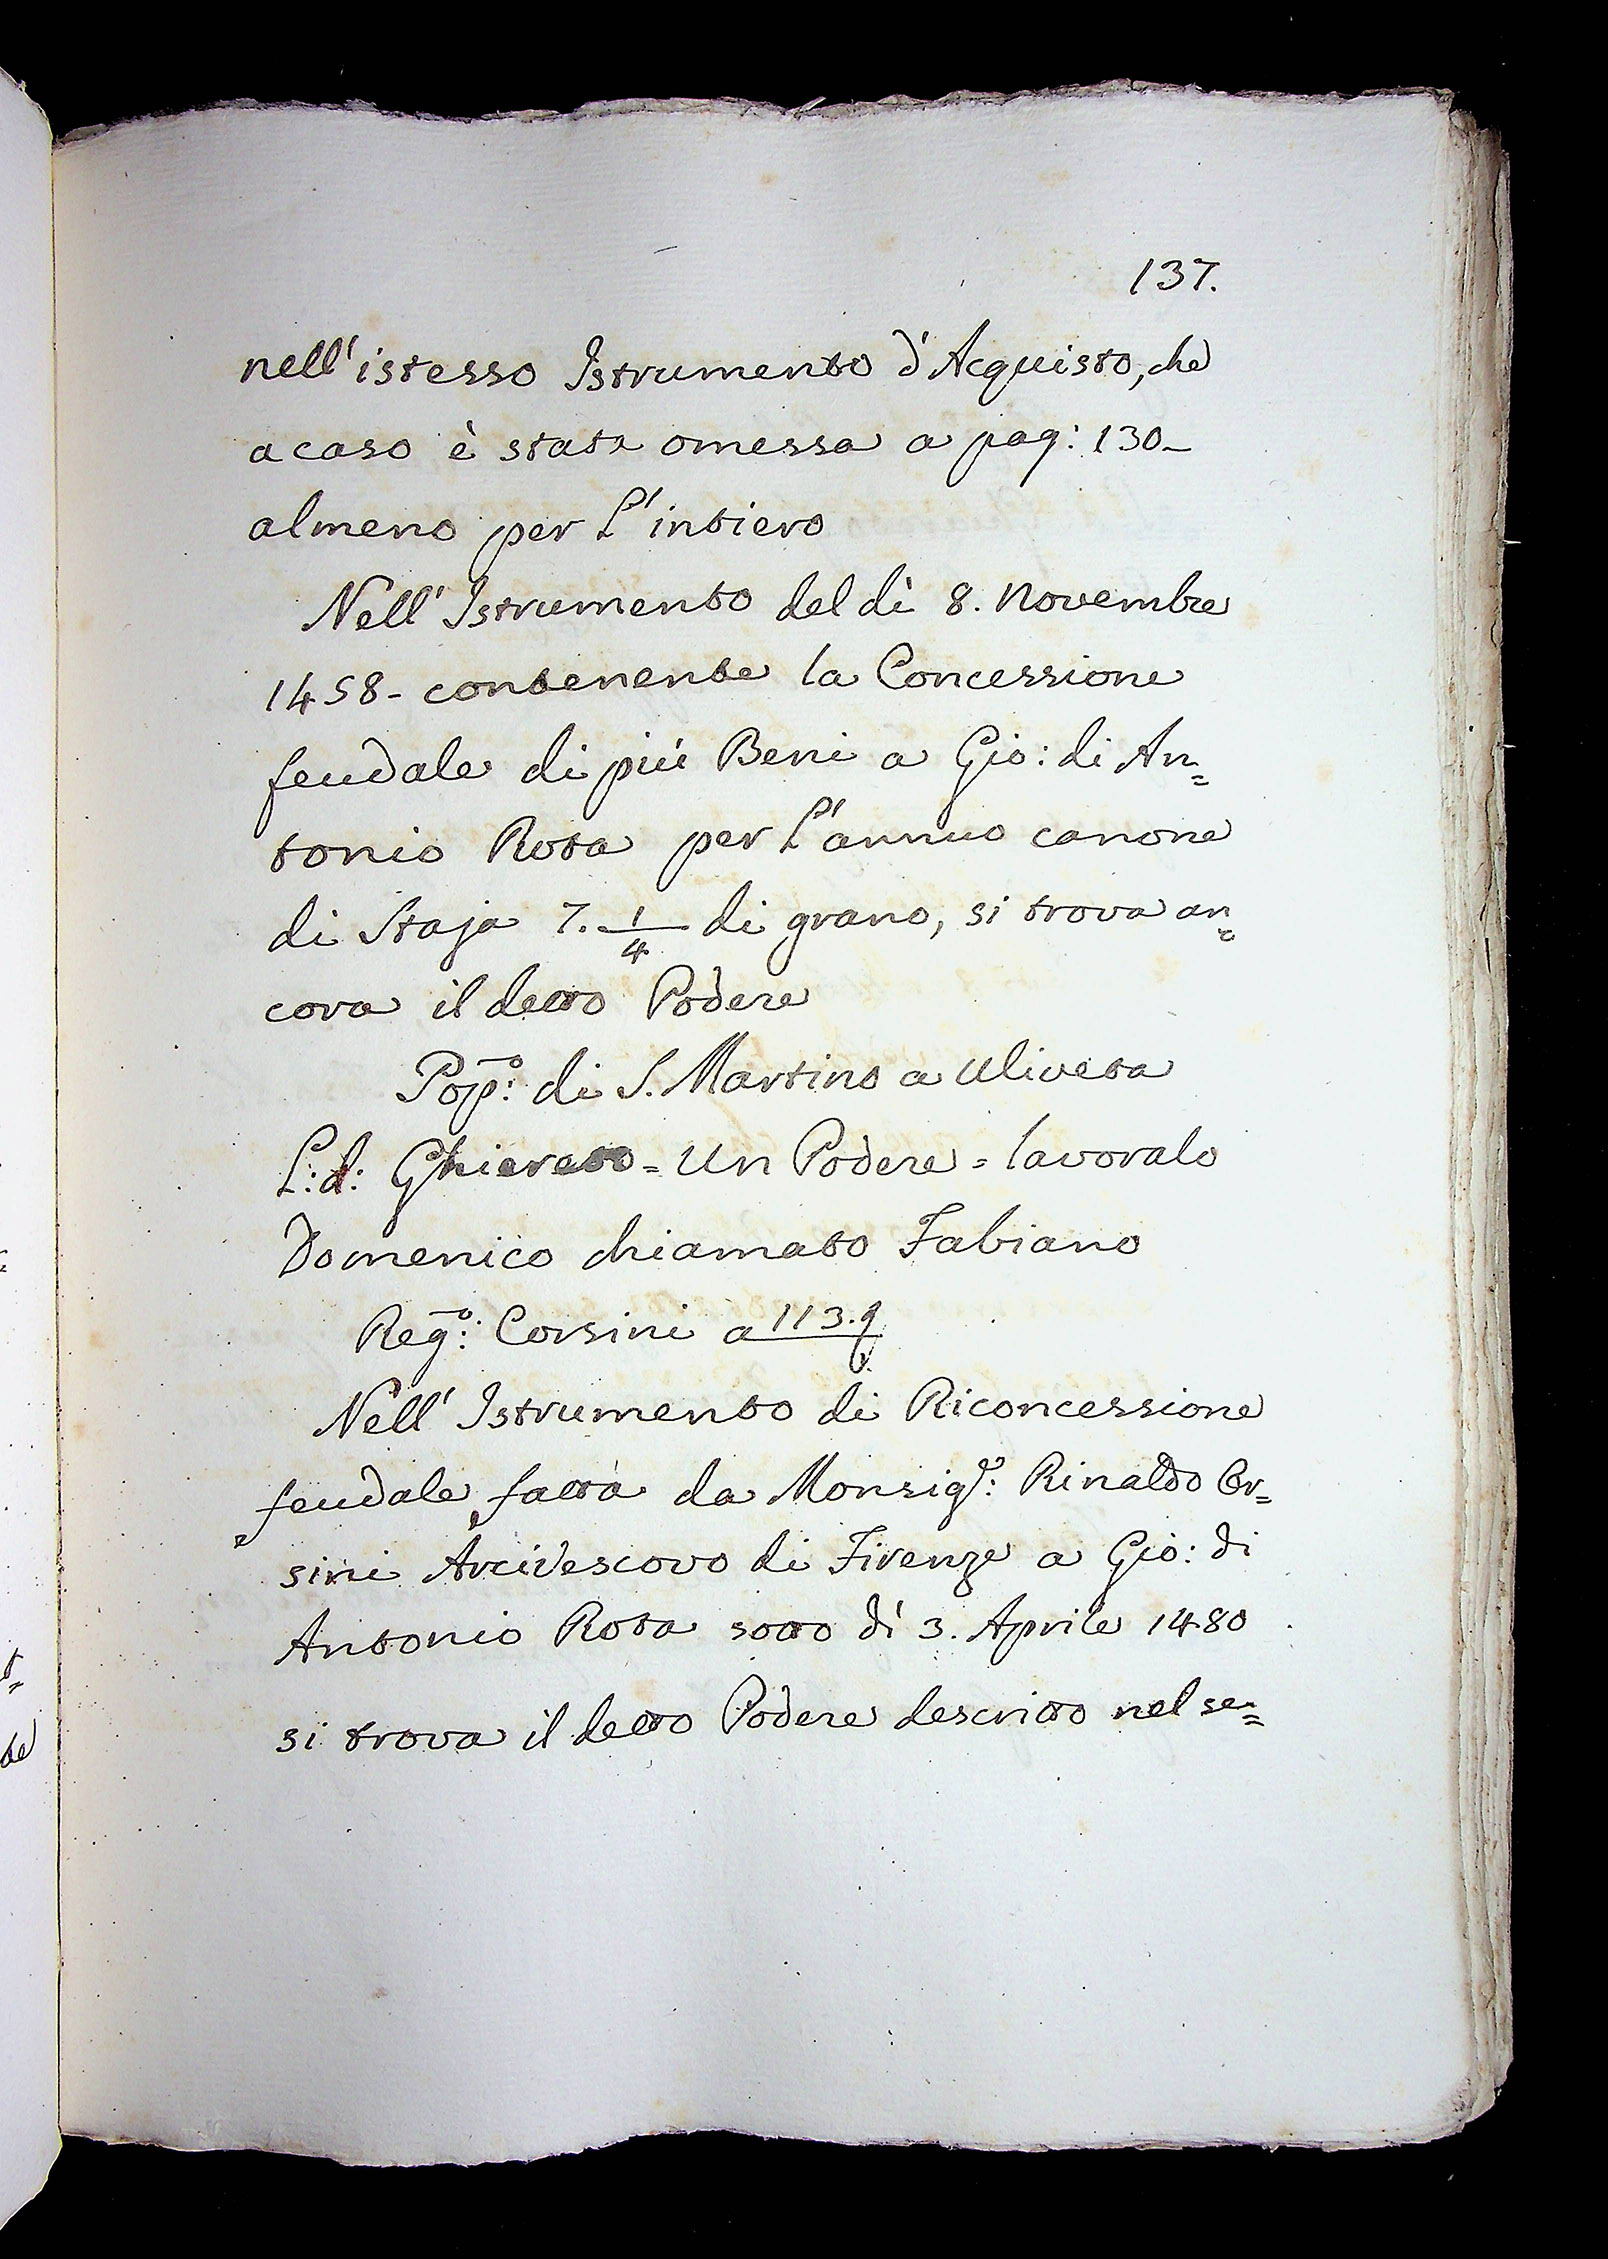 137.
nell'istesso Istrumento d'Acquisto, che
a caso è stata omessa a pag: 130_
almeno per L'intiero
Nell'Istrumento del dì 8. Novembre
1458- contenente la Concessione
feudale di più Beni a Gio: di An=
tonio Rota per L'annuo canone
di Staja 7. 1/4 di grano, si trova an=
cora il detto Podere
Pop:o di S. Martino a Uliveta
L: d: Ghiereto = Un Podere = lavoralo
Domenico chiamato Fabiano
Reg:o Corsini a 113.
Nell'Istrumento di Riconcessione
feudale fatta da Monsig:e Rinaldo Or=
sini Arcivescovo di Firenze a Gio: di
Antonio Rota sotto dì 3. Aprile 1480
si trova il detto Podere descritto nel se=